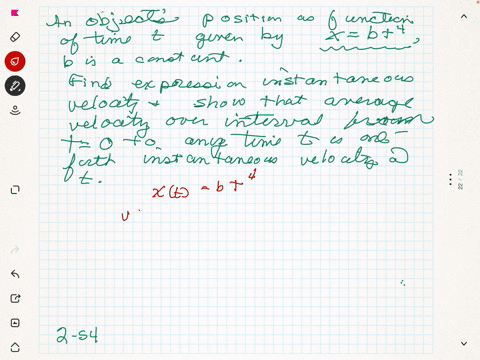 An object's position as function
of time t given by x = bt⁴,
b is a constant.
Find expression instantaneous
velocity & show that average
velocity over interval from
t=0 to any time t is one-
forth instantaneous velocity @
t.
x(t) = bt⁴
v
2-54
22 / 22